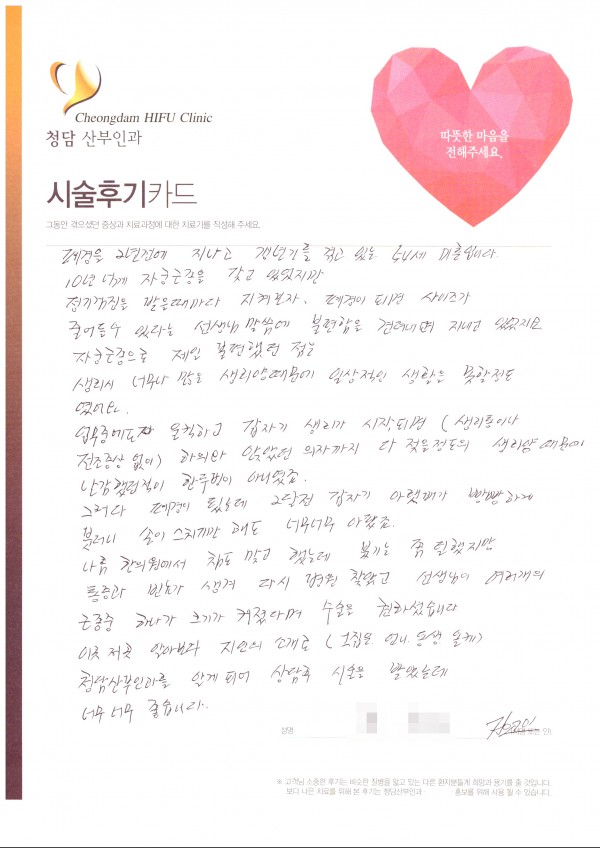 Cheongdam HIFU Clinic
청담 산부인과
따뜻한 마음을
전해주세요.
시술후기카드
그동안 겪으셨던 증상과 치료과정에 대한 치료기를 작성해 주세요.
폐경을 2년전에 지나고 갱년기를 겪고 있는 54세 미혼입니다.
10년 넘게 자궁근종을 갖고 있었지만
정기검진을 받을때마다 지켜보자. 폐경이 되면 사이즈가
줄어들수 있다라는 선생님 말씀에 불편함을 견뎌내면 지내고 있었지요
자궁근종으로 제일 불편했던 점은
생리시 너무나 많은 생리양때문에 일상적인 생활을 못할정도
였어요.
업무중에도 움찔하고 갑자기 생리가 시작되면 (생리통이나
전조증상 없이) 하의와 앉았던 의자까지 다 젖을정도의 생리양 때문에
난감했던적이 한두번이 아니였죠.
그러다 폐경이 됐는데 2달전 갑자기 아랫배가 빵빵하게
붓더니 손이 스치기만 해도 너무너무 아팠죠.
나름 한의원에서 침도 맞고 했는데 붓기는 좀 덜했지만
통증과 빈뇨가 생겨 다시 병원 찾았고 선생님이 여러개의
근종중 하나가 크기가 커졌다며 수술을 권하셨습니다
이곳 저곳 알아보다 지인의 소개로 ( 언니. 동생. 올케)
청담산부인과를 알게 되어 상담후 시술을 받았는데
너무너무 좋습니다.
성명
※ 고객님 소중한 후기는 비슷한 질병을 앓고 있는 다른 환자분들께 희망과 용기를 줄 것입니다.
보다 나은 치료를 위해 본 후기는 청담산부인과· 홍보를 위해 사용 될 수 있습니다.